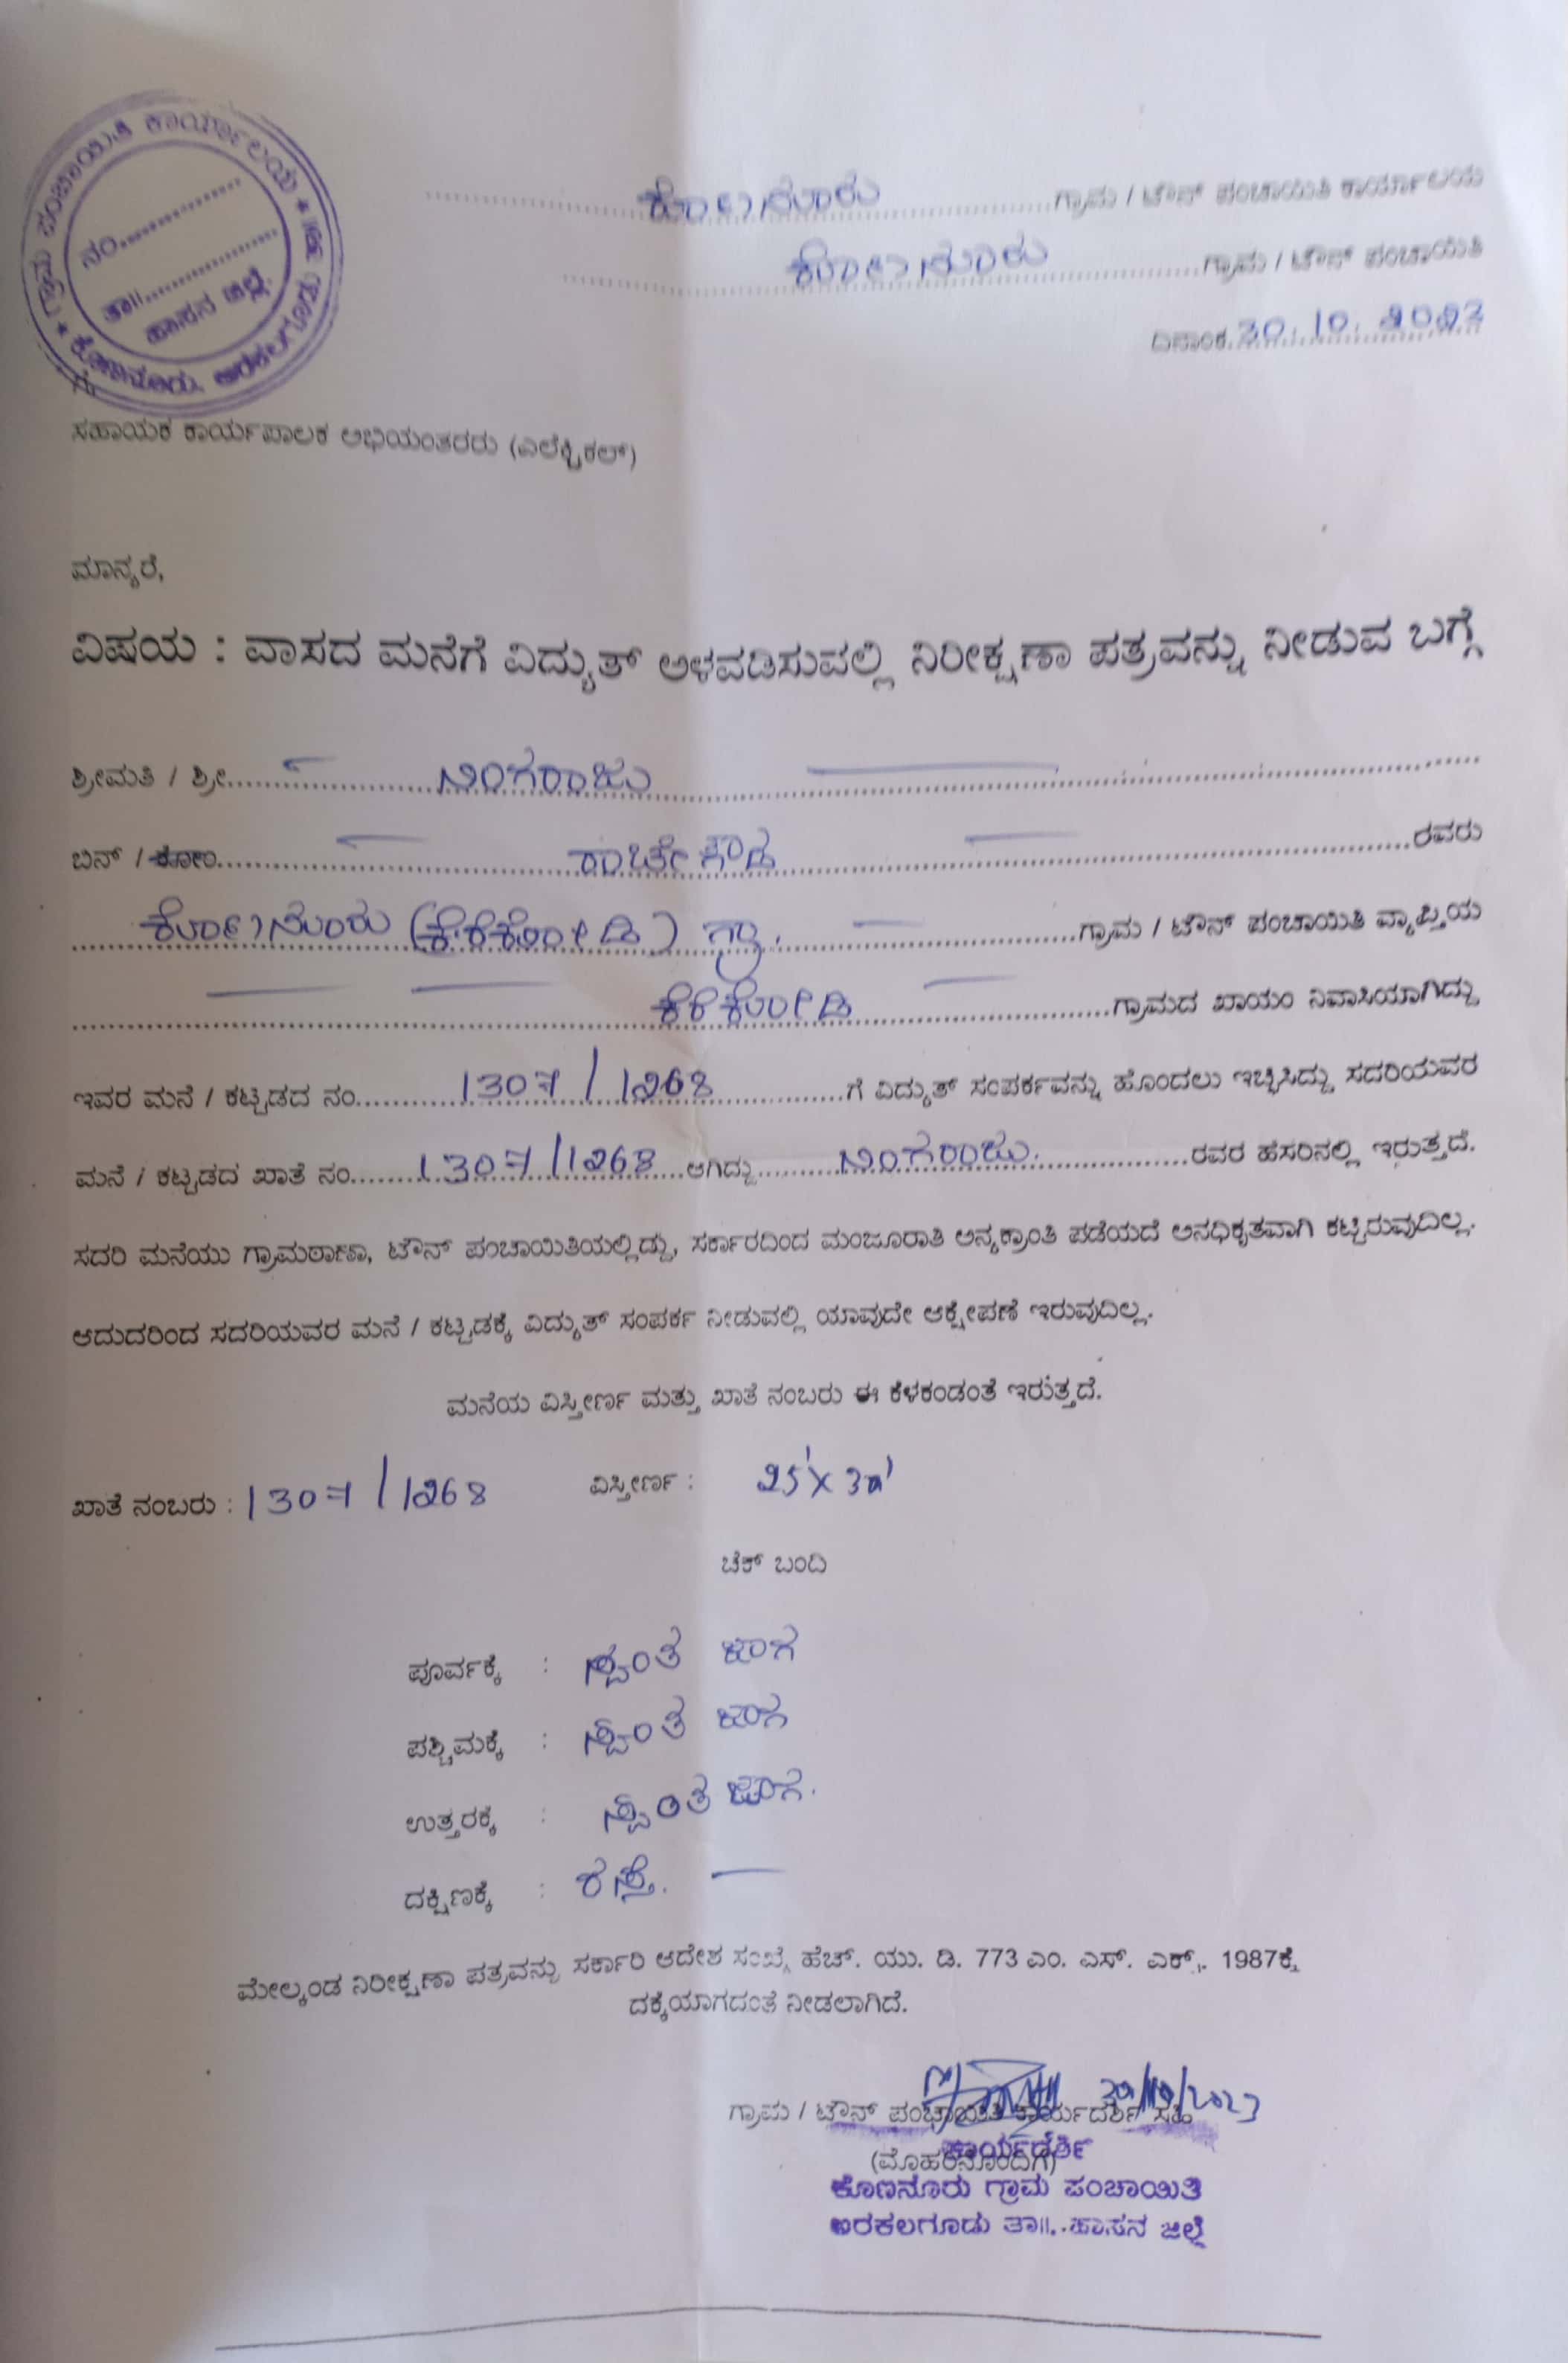 ಗ್ರಾಮ ಪಂಚಾಯಿತಿ ಕಾರ್ಯಾಲಯ * ಕೊಣನೂರು, ಅರಕಲಗೂಡು ತಾ॥ *
ನಂ..................
ತಾ॥..................
ಹಾಸನ ಜಿಲ್ಲೆ.
ಕೊಣನೂರು ಗ್ರಾಮ / ಟೌನ್ ಪಂಚಾಯಿತಿ ಕಾರ್ಯಾಲಯ
ಕೊಣನೂರು ಗ್ರಾಮ / ಟೌನ್ ಪಂಚಾಯಿತಿ
ದಿನಾಂಕ 30.10.2023
ಗೆ,
ಸಹಾಯಕ ಕಾರ್ಯಪಾಲಕ ಅಭಿಯಂತರರು (ಎಲೆಕ್ಟ್ರಿಕಲ್)
ಮಾನ್ಯರೆ,
ವಿಷಯ : ವಾಸದ ಮನೆಗೆ ವಿದ್ಯುತ್ ಅಳವಡಿಸುವಲ್ಲಿ ನಿರೀಕ್ಷಣಾ ಪತ್ರವನ್ನು ನೀಡುವ ಬಗ್ಗೆ
ಶ್ರೀಮತಿ / ಶ್ರೀ ನಿಂಗರಾಜು
ಬಿನ್ / ಕೋಂ ರಾಚೇಗೌಡ ರವರು
ಕೊಣನೂರು (ಕೆರೆಕೋಡಿ) ಗ್ರಾ. ಗ್ರಾಮ / ಟೌನ್ ಪಂಚಾಯಿತಿ ವ್ಯಾಪ್ತಿಯ
ಕೆರೆಕೋಡಿ ಗ್ರಾಮದ ಖಾಯಂ ನಿವಾಸಿಯಾಗಿದ್ದು
ಇವರ ಮನೆ / ಕಟ್ಟಡದ ನಂ. 1307/1268 ಗೆ ವಿದ್ಯುತ್ ಸಂಪರ್ಕವನ್ನು ಹೊಂದಲು ಇಚ್ಛಿಸಿದ್ದು ಸದರಿಯವರ
ಮನೆ / ಕಟ್ಟಡದ ಖಾತೆ ನಂ. 1307/1268 ಆಗಿದ್ದು ನಿಂಗರಾಜು. ರವರ ಹೆಸರಿನಲ್ಲಿ ಇರುತ್ತದೆ.
ಸದರಿ ಮನೆಯು ಗ್ರಾಮಠಾಣಾ, ಟೌನ್ ಪಂಚಾಯಿತಿಯಲ್ಲಿದ್ದು, ಸರ್ಕಾರದಿಂದ ಮಂಜೂರಾತಿ ಅನ್ಯಕ್ರಾಂತಿ ಪಡೆಯದೆ ಅನಧಿಕೃತವಾಗಿ ಕಟ್ಟಿರುವುದಿಲ್ಲ.
ಆದುದರಿಂದ ಸದರಿಯವರ ಮನೆ / ಕಟ್ಟಡಕ್ಕೆ ವಿದ್ಯುತ್ ಸಂಪರ್ಕ ನೀಡುವಲ್ಲಿ ಯಾವುದೇ ಆಕ್ಷೇಪಣೆ ಇರುವುದಿಲ್ಲ.
ಮನೆಯ ವಿಸ್ತೀರ್ಣ ಮತ್ತು ಖಾತೆ ನಂಬರು ಈ ಕೆಳಕಂಡಂತೆ ಇರುತ್ತದೆ.
ಖಾತೆ ನಂಬರು : 1307/1268 ವಿಸ್ತೀರ್ಣ : 25'x30'
ಚೆಕ್ ಬಂದಿ
ಪೂರ್ವಕ್ಕೆ : ಸ್ವಂತ ಜಾಗ
ಪಶ್ಚಿಮಕ್ಕೆ : ಸ್ವಂತ ಜಾಗ
ಉತ್ತರಕ್ಕೆ : ಸ್ವಂತ ಜಾಗ.
ದಕ್ಷಿಣಕ್ಕೆ : ರಸ್ತೆ. —
ಮೇಲ್ಕಂಡ ನಿರೀಕ್ಷಣಾ ಪತ್ರವನ್ನು ಸರ್ಕಾರಿ ಆದೇಶ ಸಂಖ್ಯೆ ಹೆಚ್. ಯು. ಡಿ. 773 ಎಂ. ಎನ್. ಎಕ್ಸ್. 1987ಕ್ಕೆ
ದಕ್ಕೆಯಾಗದಂತೆ ನೀಡಲಾಗಿದೆ.
30/10/2023
ಗ್ರಾಮ / ಟೌನ್ ಪಂಚಾಯಿತಿ ಕಾರ್ಯದರ್ಶಿ ಸಹಿ
ಕಾರ್ಯದರ್ಶಿ
(ಮೊಹರಿನೊಂದಿಗೆ)
ಕೊಣನೂರು ಗ್ರಾಮ ಪಂಚಾಯಿತಿ
ಅರಕಲಗೂಡು ತಾ॥. ಹಾಸನ ಜಿಲ್ಲೆ